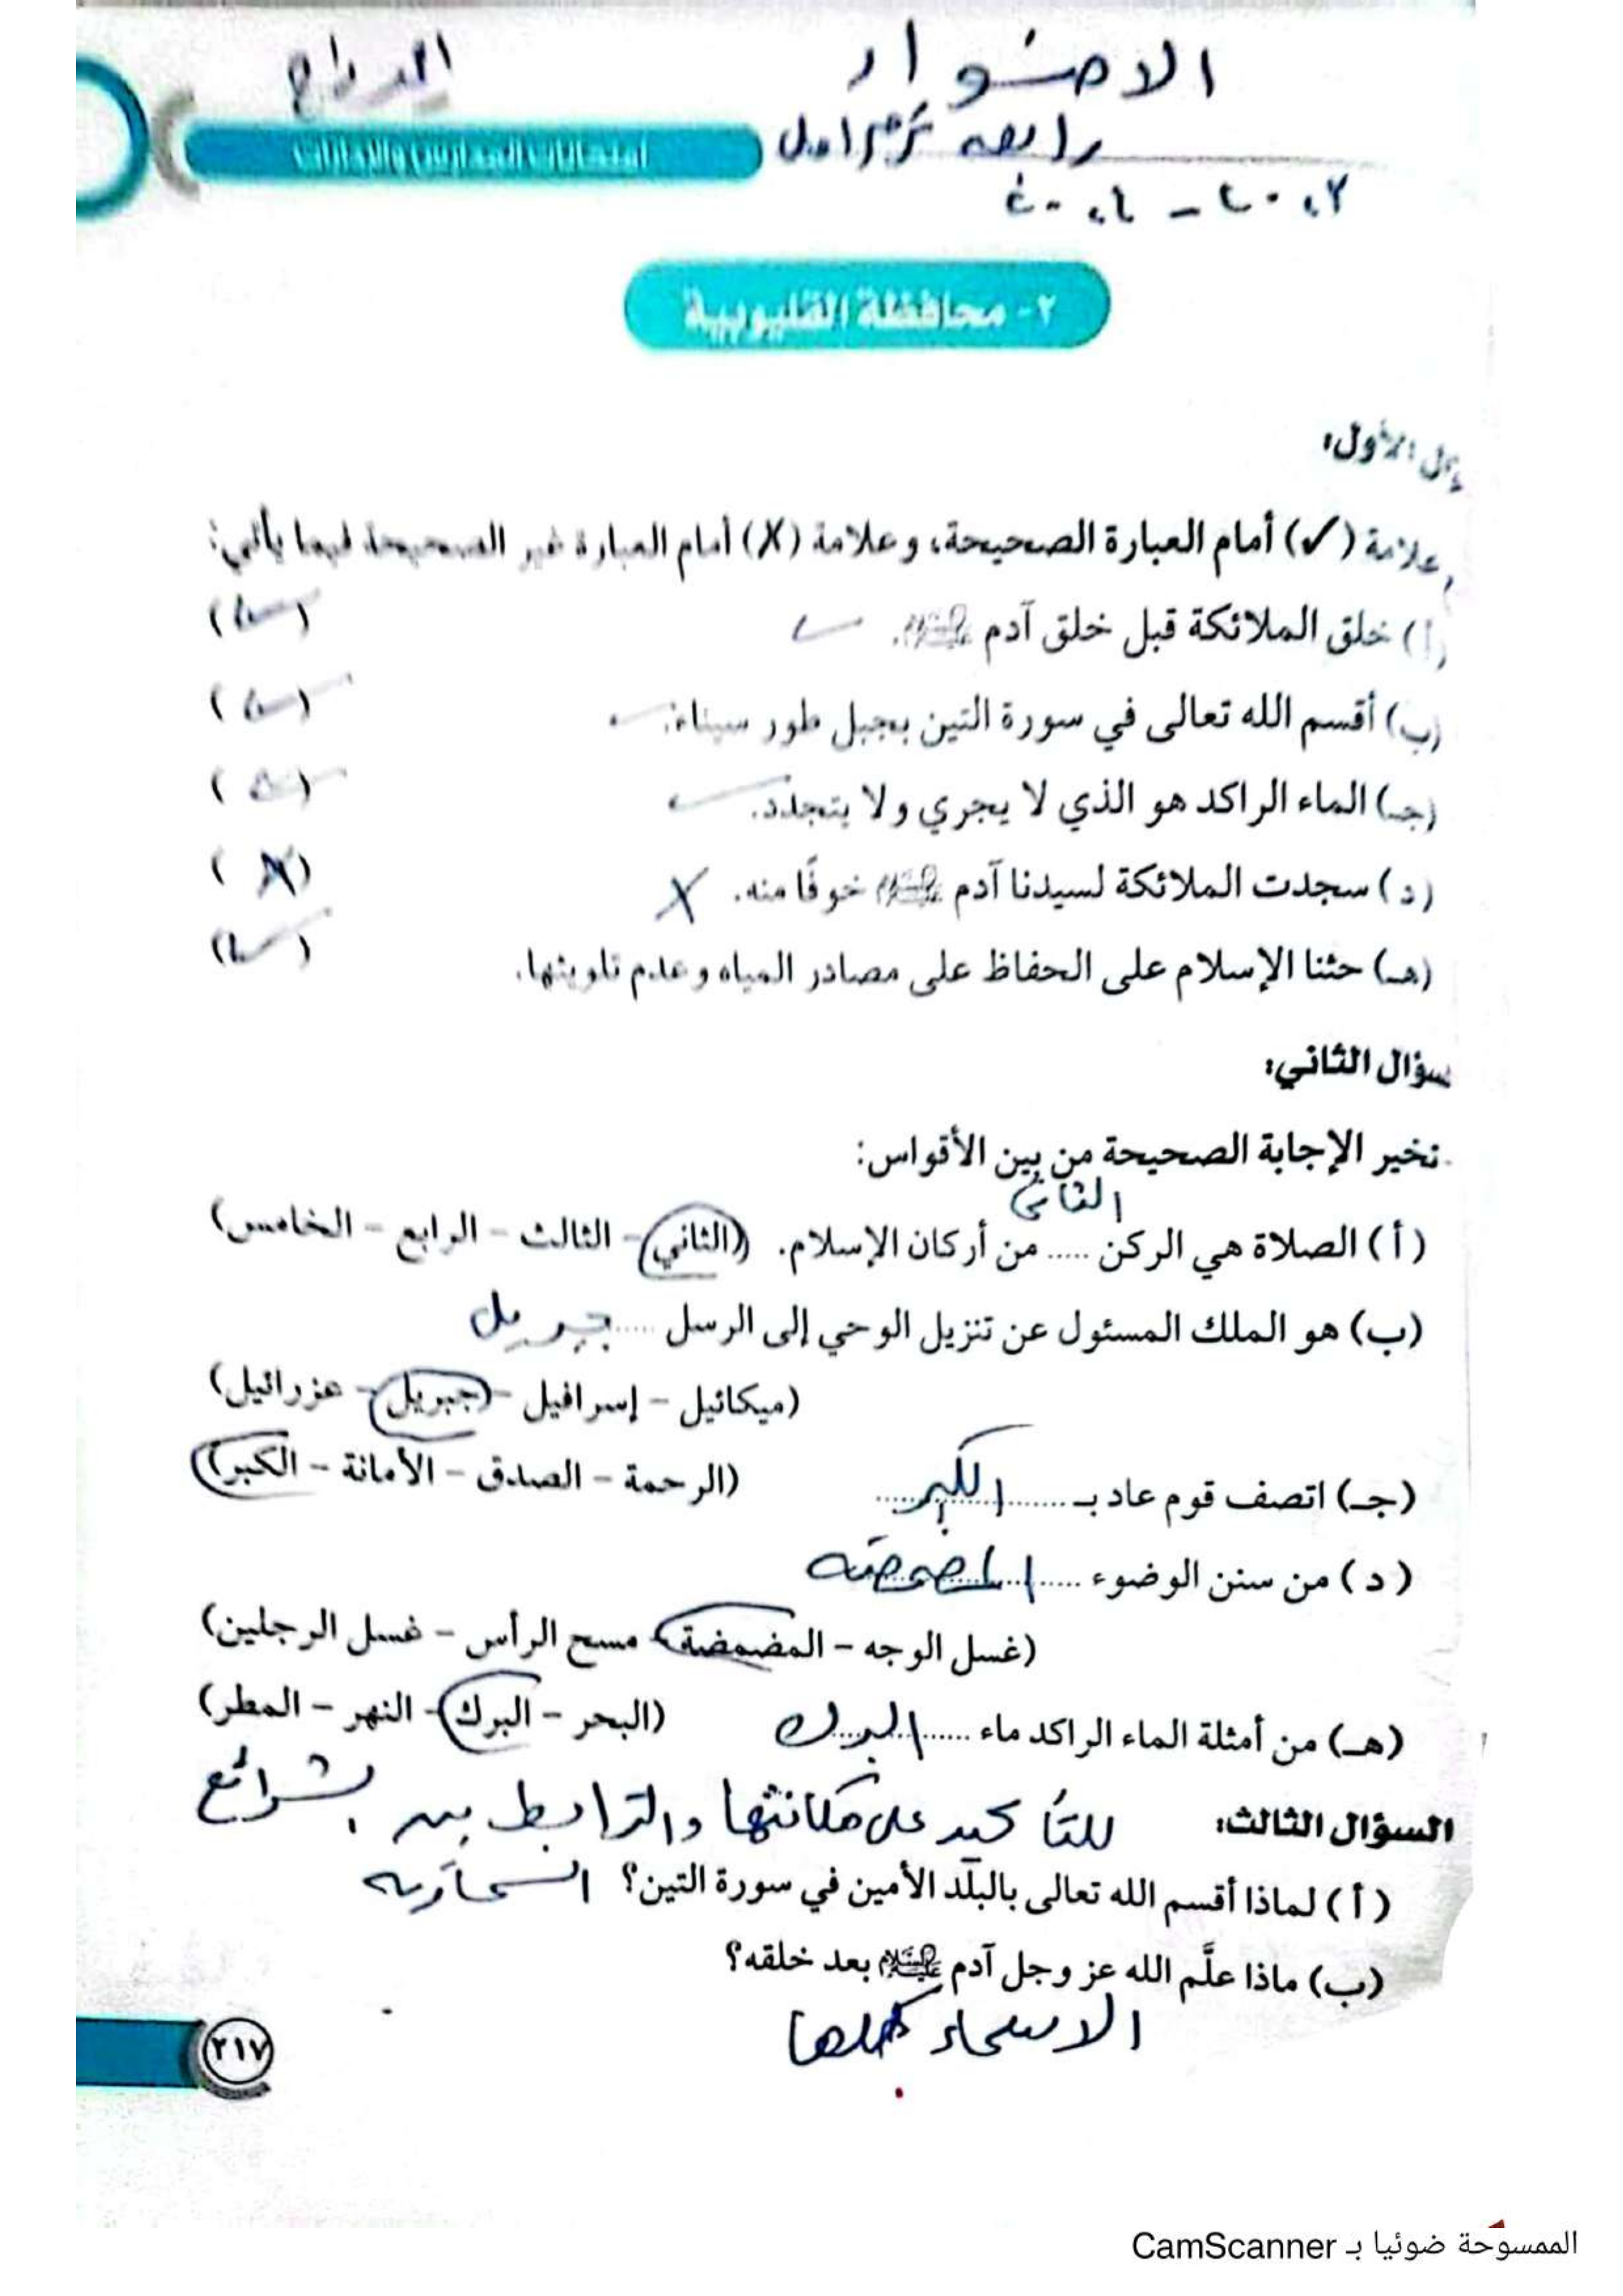 الاضواء
المراجع
رابعه ترم اول
امتحانات المدارس والإدارات
٢٠٢٣ - ٢٠٢٤
٢- محافظة القليوبية
ال الأول:
علامة (✓) أمام العبارة الصحيحة، وعلامة (X) أمام العبارة غير الصحيحة فيما يأتي:
(أ) خلق الملائكة قبل خلق آدم عليه السلام. ✓ (✓)
(ب) أقسم الله تعالى في سورة التين بجبل طور سيناء. ✓ (✓)
(جـ) الماء الراكد هو الذي لا يجري ولا يتجدد. ✓ (✓)
(د) سجدت الملائكة لسيدنا آدم عليه السلام خوفًا منه. X (X)
(هـ) حثنا الإسلام على الحفاظ على مصادر المياه وعدم تلويثها. (✓)
سؤال الثاني:
تخير الإجابة الصحيحة من بين الأقواس:
الثانى
(أ) الصلاة هي الركن ..... من أركان الإسلام. (الثاني - الثالث - الرابع - الخامس)
(ب) هو الملك المسئول عن تنزيل الوحي إلى الرسل ..... جبريل
(ميكائيل - إسرافيل - جبريل - عزرائيل)
(جـ) اتصف قوم عاد بـ ........ الكبر ........ (الرحمة - الصدق - الأمانة - الكبر)
(د) من سنن الوضوء ........ المضمضة
(غسل الوجه - المضمضة - مسح الرأس - غسل الرجلين)
(هـ) من أمثلة الماء الراكد ماء ........ البرك (البحر - البرك - النهر - المطر)
السؤال الثالث: للتأكيد على مكانتها والترابط بين الشرائع
(أ) لماذا أقسم الله تعالى بالبلد الأمين في سورة التين؟ السماوية
(ب) ماذا علَّم الله عز وجل آدم عليه السلام بعد خلقه؟
الاسماء كلها
٢١٧
الممسوحة ضوئيا بـ CamScanner